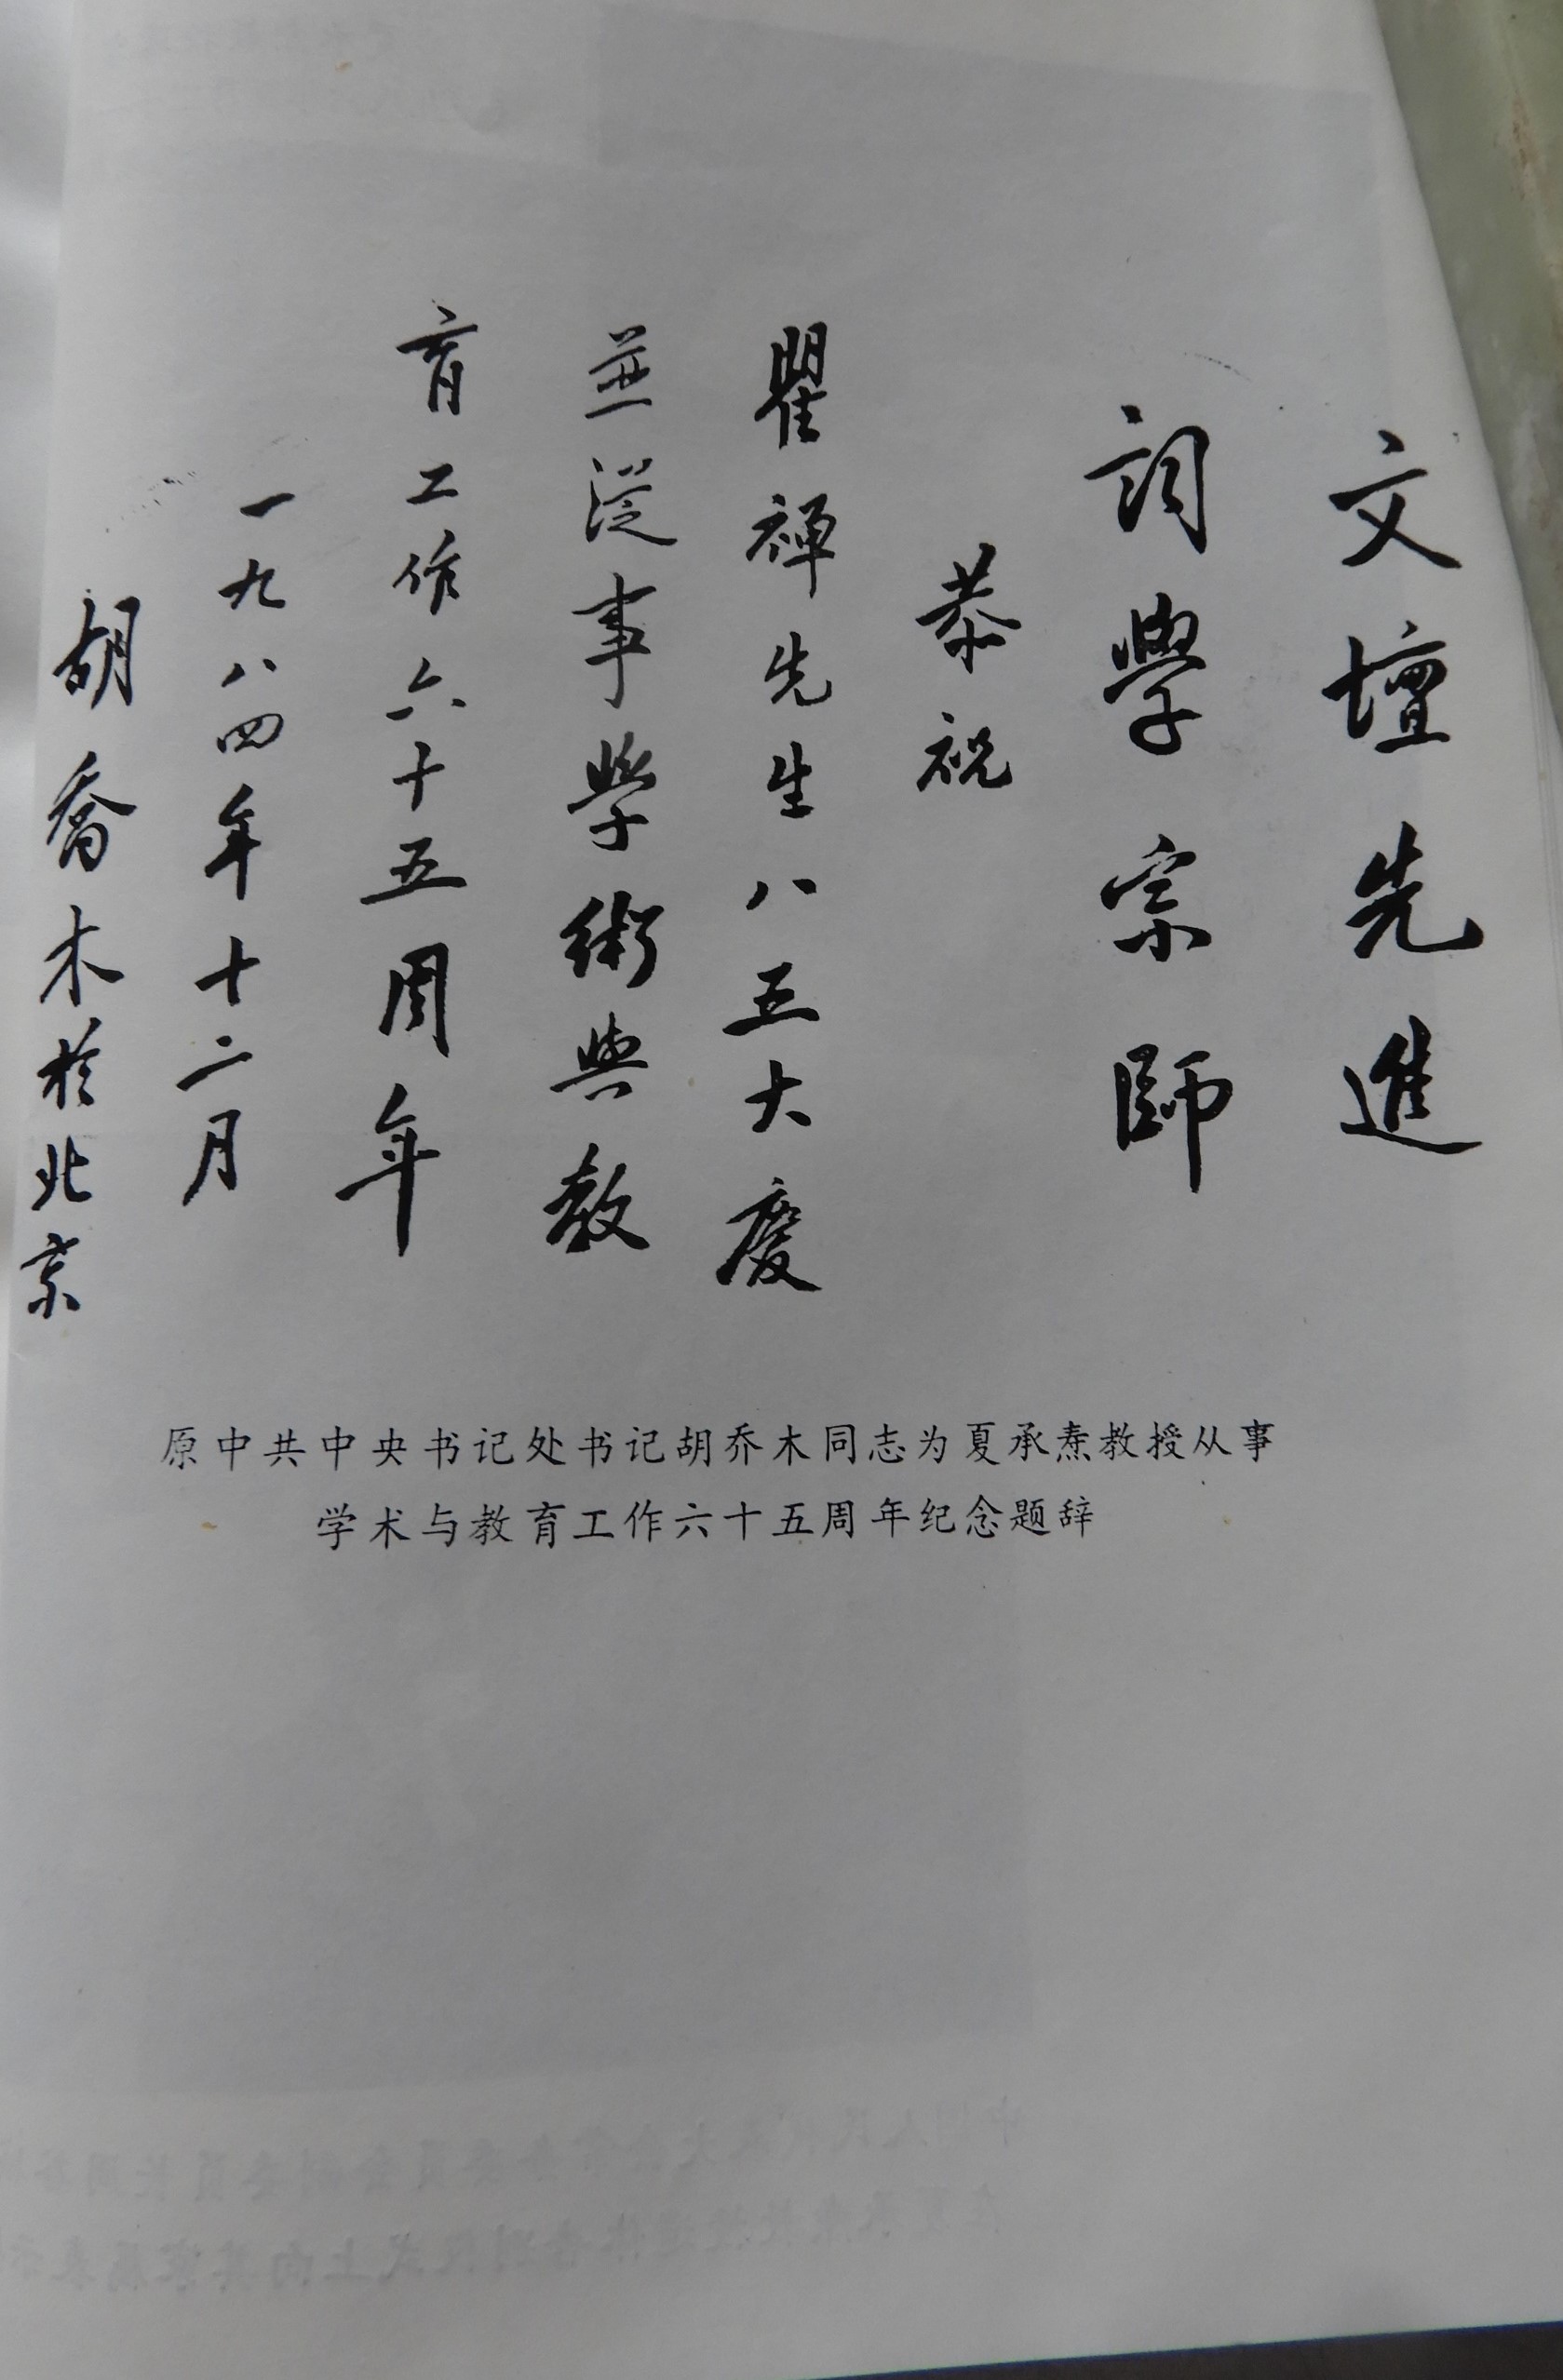 文壇先進
詞學宗師
恭祝
瞿禅先生八五大慶
並從事學術與教
育工作六十五周年
一九八四年十二月
胡喬木於北京
原中共中央书记处书记胡乔木同志为夏承焘教授从事
学术与教育工作六十五周年纪念题辞